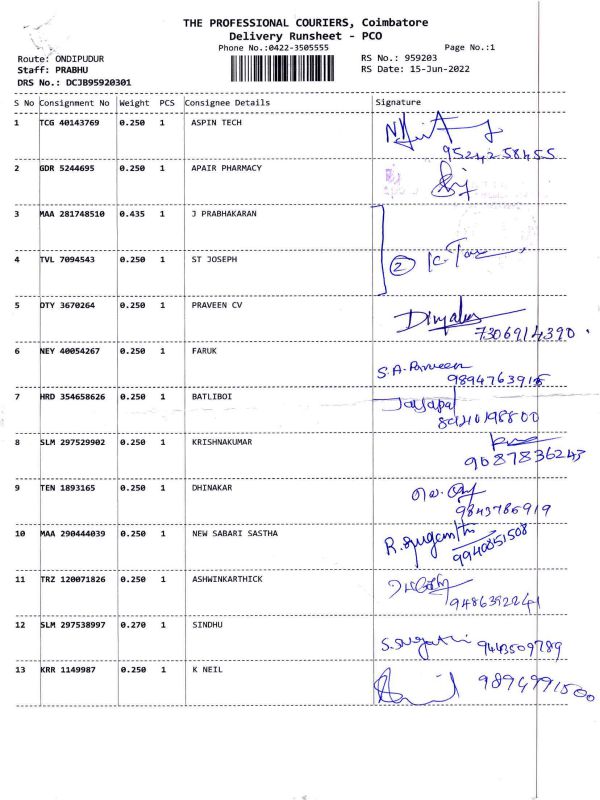 THE PROFESSIONAL COURIERS, Coimbatore
Delivery Runsheet - PCO
Phone No.:0422-3505555 Page No.:1
Route: ONDIPUDUR RS No.: 959203
Staff: PRABHU RS Date: 15-Jun-2022
DRS No.: DCJB95920301
S No Consignment No Weight PCS Consignee Details Signature
1 TCG 40143769 0.250 1 ASPIN TECH
95242 58455
2 GDR 5244695 0.250 1 APAIR PHARMACY
3 MAA 281748510 0.435 1 J PRABHAKARAN
4 TVL 7094543 0.250 1 ST JOSEPH
2
5 DTY 3670264 0.250 1 PRAVEEN CV
7306914390
6 NEY 40054267 0.250 1 FARUK
S.A. Parveen
7 HRD 354658626 0.250 1 BATLIBOI
Jayapal
8 SLM 297529902 0.250 1 KRISHNAKUMAR
9087836243
9 TEN 1893165 0.250 1 DHINAKAR
9843786919
10 MAA 290444039 0.250 1 NEW SABARI SASTHA
R. Suganthi
9940851508
11 TRZ 120071826 0.250 1 ASHWINKARTHICK
9486392241
12 SLM 297538997 0.270 1 SINDHU
9443509789
13 KRR 1149987 0.250 1 K NEIL
9894991500